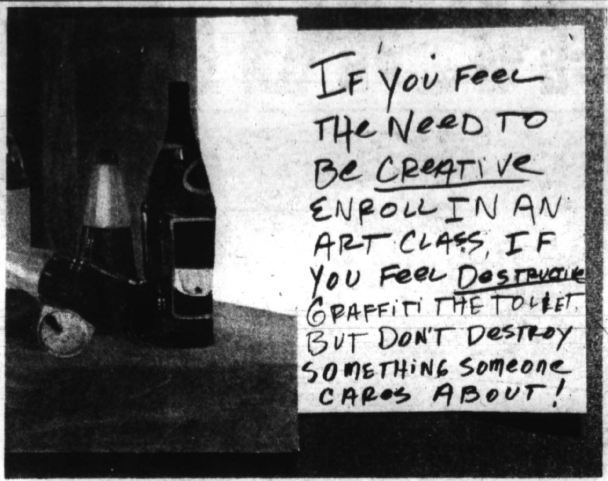 IF YOU FEEL
THE NEED TO
BE CREATIVE
ENROLL IN AN
ART CLASS, IF
YOU FEEL DESTRUCTIVE
GRAFFITI THE TOILET.
BUT DON'T DESTROY
SOMETHING SOMEONE
CARES ABOUT!